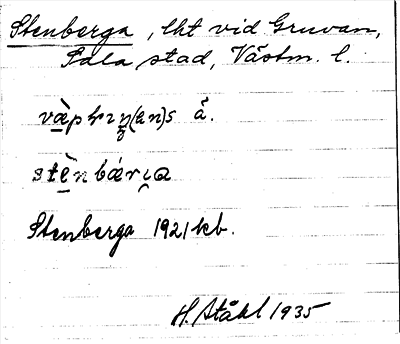 Stenberga, lht vid Gruvan,
Sala stad, Västm. l.
å.
stὲnbárɩ̯a
Stenberga 1921 kb.
H. Ståhl 1935